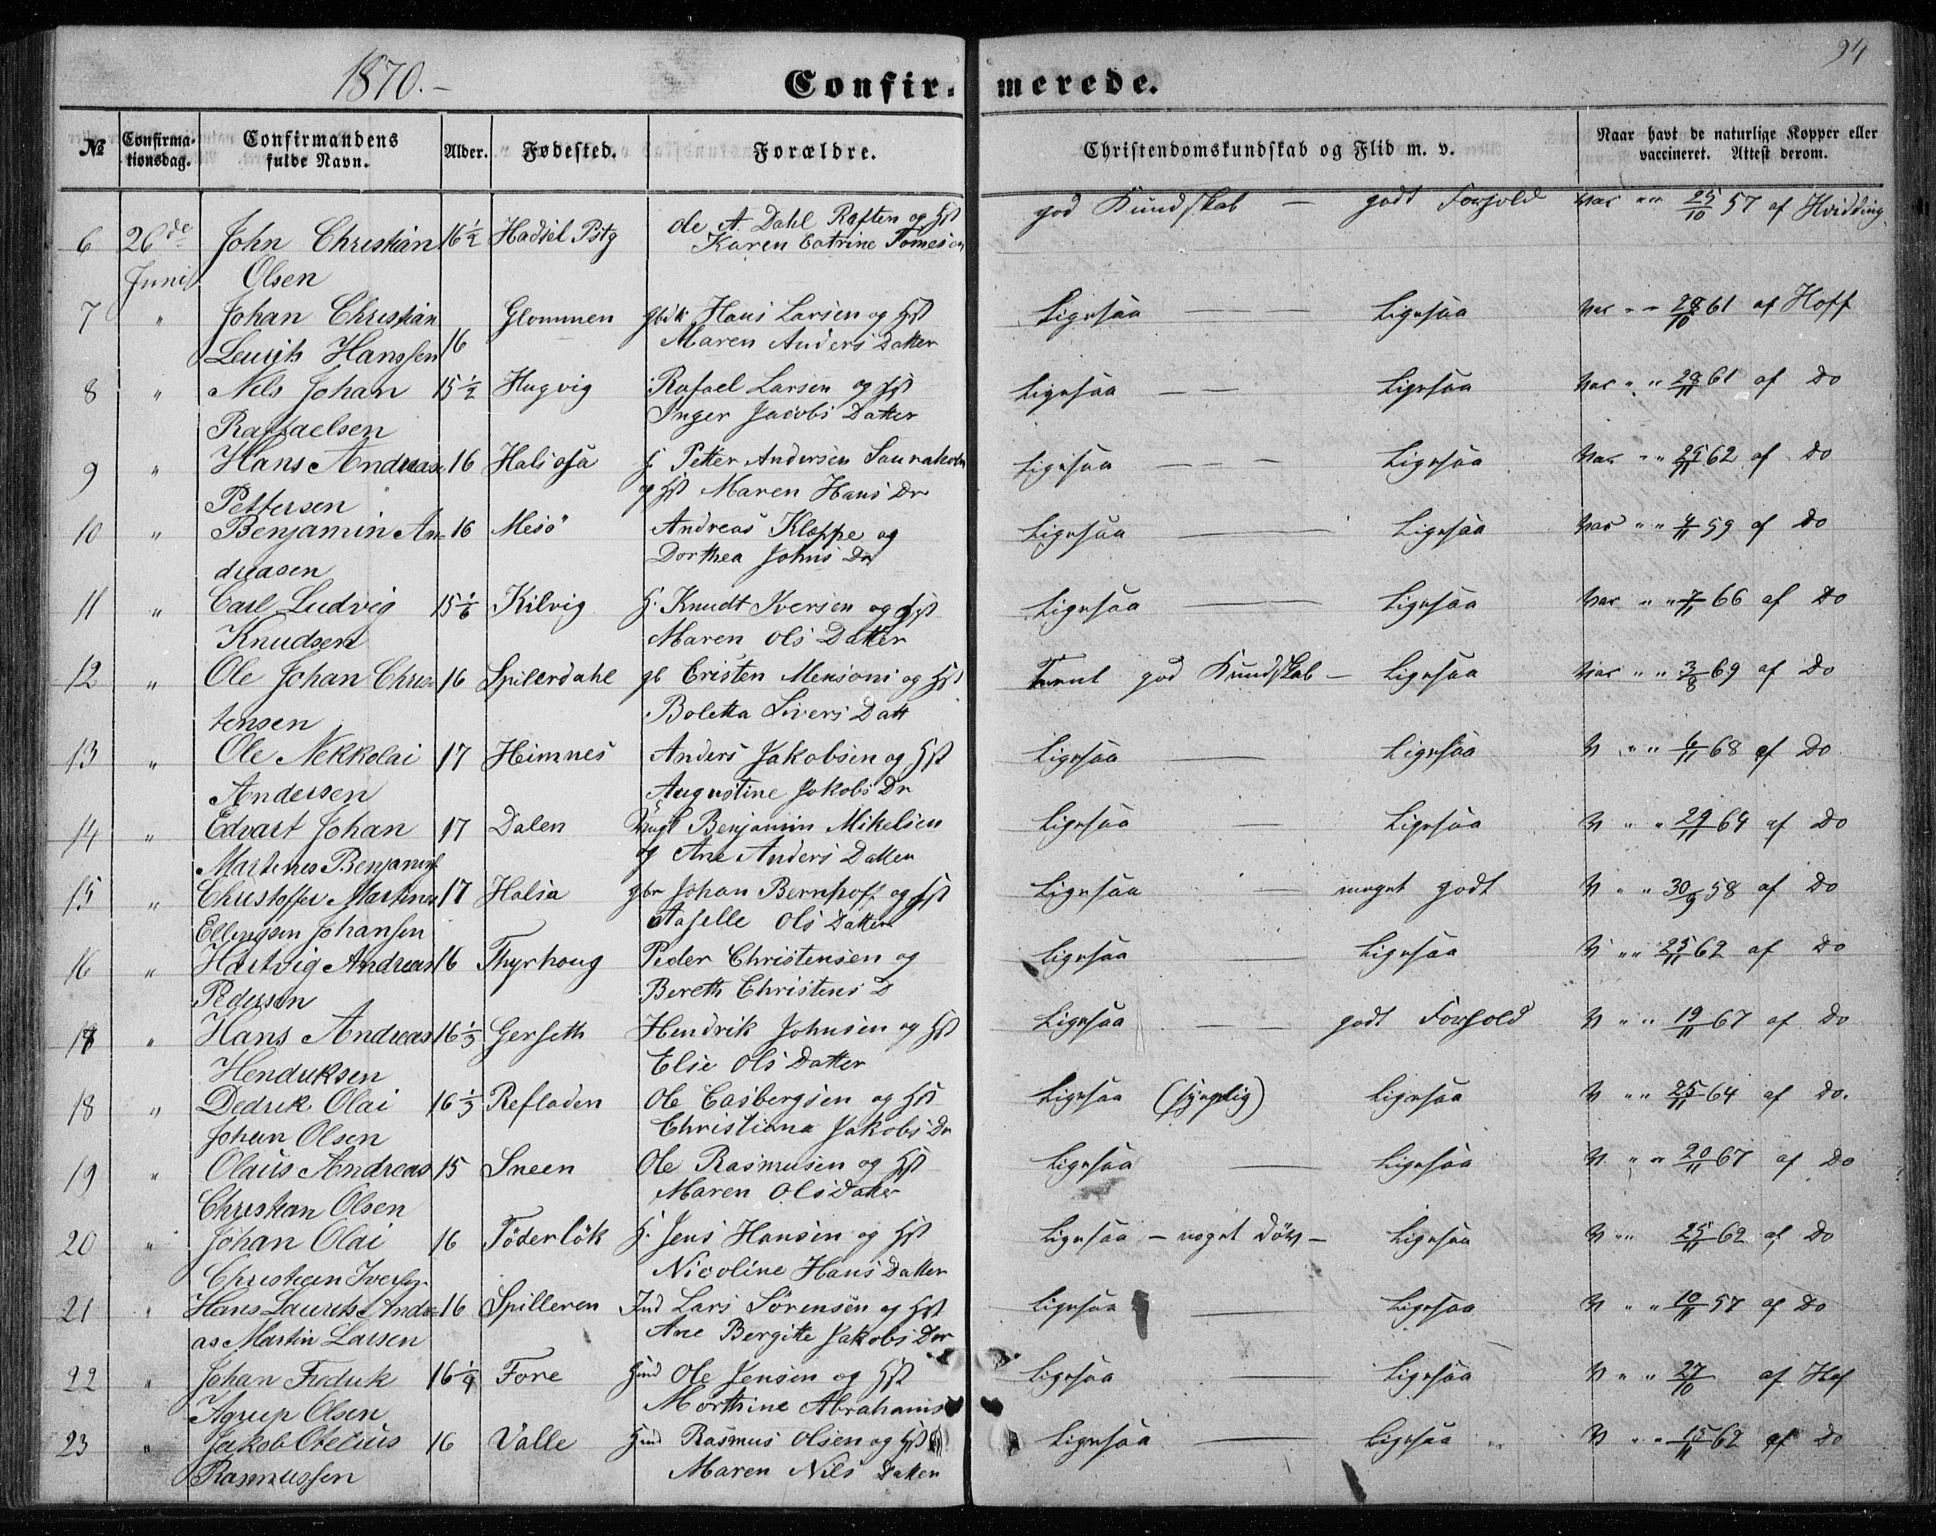 1870.- Confirmerede. 94
No Confirmationsdag. Confirmandens fulde Navn. Alder. Fødested. Forældre. Christendomskundskab og Flid m. v. Naar havt de naturlige Kopper eller vaccineret. Attest derom.
6 26de John Christian 16 1/2 Hadsel Pstg Ole A. Dahl Raften og Hst god Kundskab — godt Forhold Vac " " 25/10 57 af Hvidding
Juni Olsen Karen Catrine
7 " Johan Christian 16 Glommen Hans Larsen og Hst Ligesaa — — — Ligesaa Vac " " 28/10 61 af Hoff
Lauritz Hanssen Maren Anders Datter
8 " Nels Johan 15 1/2 Hugvig Rafael Larsen og Hst Ligesaa — — Ligesaa Vac " " 29/11 61 af Do
Rafaelsen Inger Jacobs Datter
9 " Hans Andreas 16 Halsosa Petter Andersen Ligesaa — — — Ligesaa Vac " " 25/11 62 af Do
Pettersen og Hst Maren Hans Dr
10 " Benjamin An= 16 Mesö Andreas Kloppe og Ligesaa — Ligesaa Vac " " 4/11 59 af Do
dreasen Dorthea Johns Dr
11 " Carl Ludvig 15 1/6 Kilvig H. Knudt Iversen og Hst Ligesaa — Ligesaa Vac " " 7/11 66 af Do
Knudsen Maren Ols Datter
12 " Ole Johan Chris= 16 Spilerdahl gb Cristen Mensoni og Hst god Kundskab — Ligesaa Vac " " 3/8 69 af Do
tensen Boletta Sivers Datt
13 " Ole Nekkolai 17 Heimnes Anders Jakobsen og Hst Ligesaa — Ligesaa V " " 6/11 68 af Do
Andersen Augustine Jakobs Dr
14 " Edvart Johan 17 Dalen Benjamin Mikelsen Ligesaa — Ligesaa V " " 29/11 64 af Do
Martines og Ane Anders Datter
15 " Christoffer Martines 17 Halsa gbr Johan Bernhoft og Hst Ligesaa — meget godt V " " 30/9 58 af Do
Ellingsen Johansen Ols Datter
16 " Hartvig Andreas 16 Thyrhoug Peder Christensen og Ligesaa — Ligesaa V " " 25/11 62 af Do
Pedersen Bereth Christens D
17 " Hans Andreas 16 1/3 Gerseth Hendrik Johnsen og Hst Ligesaa — godt Forhold V " " 19/11 67 af Do
Hendriksen Else Ols Datter
18 " Dedrik Olai 16 1/3 Refladen Ole Casbergsen og Hst Ligesaa (sygelig) Ligesaa V " " 25/11 64 af Do.
Johan Olsen Christiana Jakobs Dr
19 " Olaus Andreas 15 Sneen Ole Rasmusen og Hst Ligesaa — Ligesaa V " " 20/11 67 af Do
Christian Olsen Maren Ols Datter
20 " Johan Olai 16 Töderlök H. Jens Hansen og Hst Ligesaa — noget döv — Ligesaa V " " 25/11 62 af Do
Christian Nicoline Hans Datter
21 " Hans Laurits Andre= 16 Spilleren Ind Lars Sörensen og Hst Ligesaa — Ligesaa V " " 10/11 57 af Do
as Martin Larsen Ane Bergitte Jakobs Dr
22 " Johan Fredrik 16 1/4 Fore Hmd Ole Jensen og Hst Ligesaa — Ligesaa V " " 27/10 af Hof
Agrup Olsen Morthine Abrahams
23 " Jakob Obelius 16 Valle Hmd Rasmus Olsen og Hst Ligesaa — Ligesaa " V " " 15/11 62 af Do
Rasmussen Maren Nils Datter